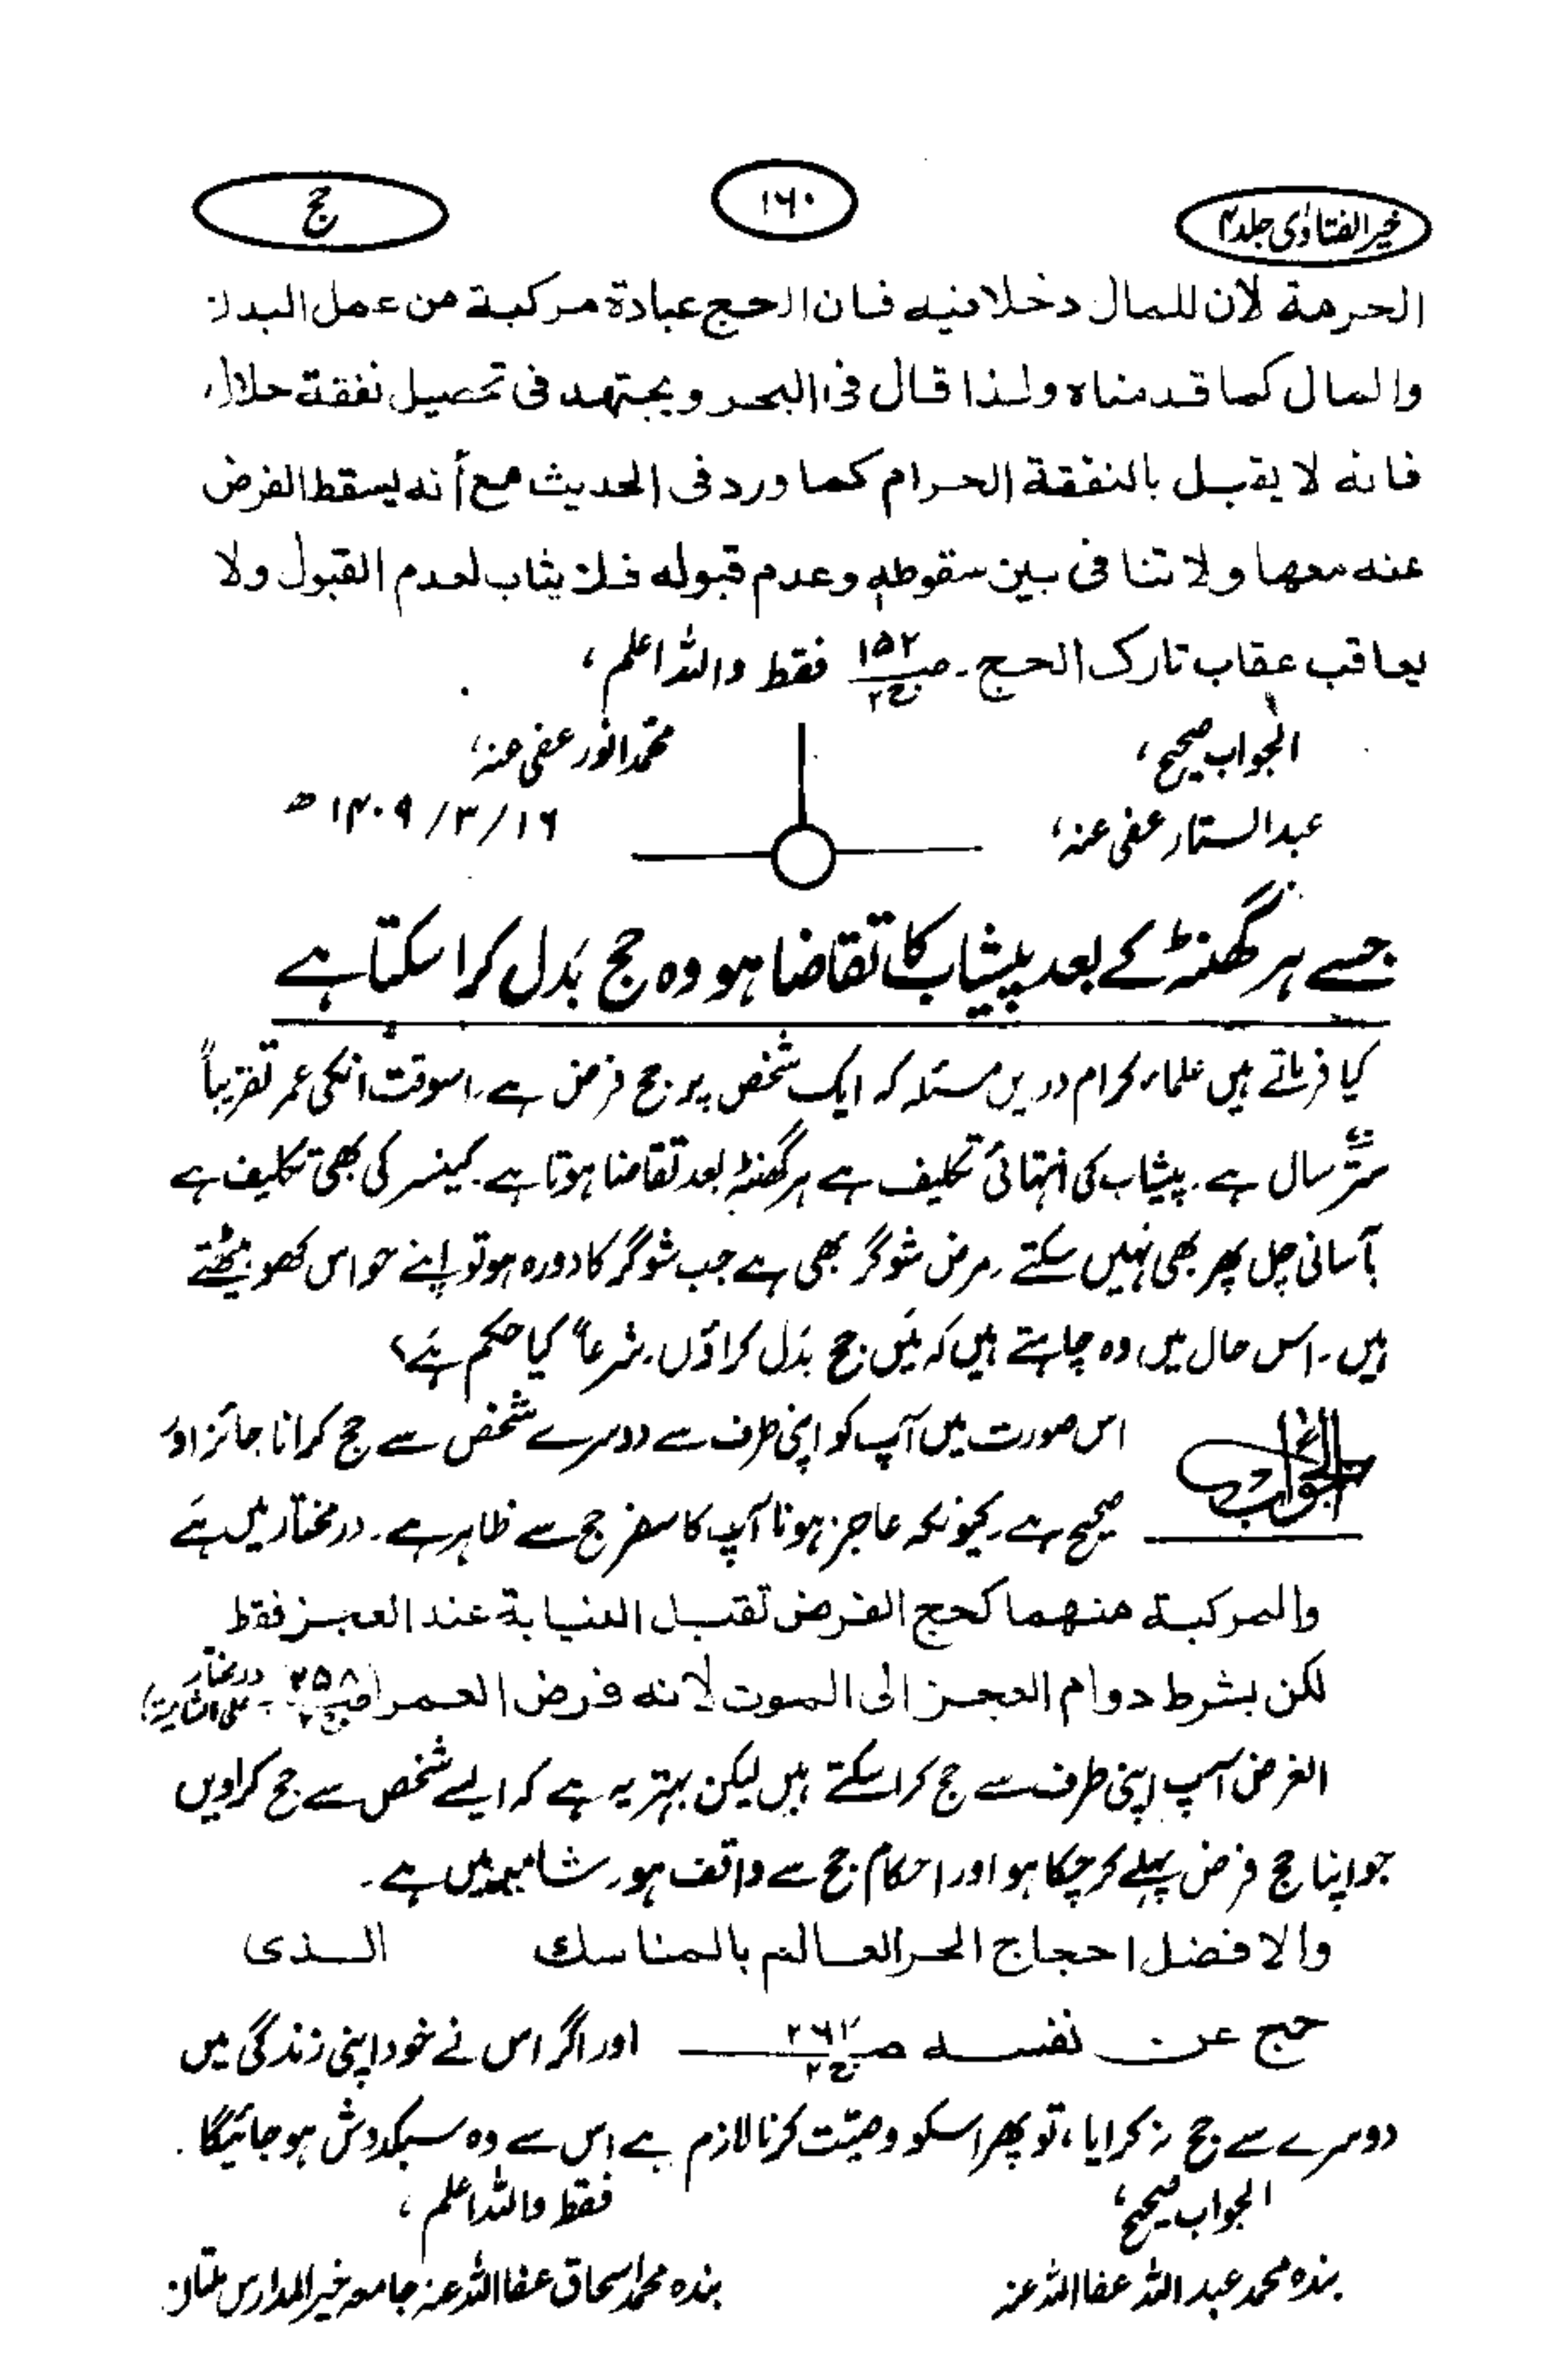 خیر الفتاوٰی جلد ۴
۱۶۰
حج
الحرمة لان للمال دخلا فیه فان الحج عبادة مرکبة من عمل البدن
والمال کما قدمناه ولذا قال فی البحر ویجتهد فی تحصیل نفقة حلال،
فانه لا یقبل بالنفقة الحرام کما ورد فی الحدیث مع أنه یسقط الفرض
عنه معها ولا تنافی بین سقوطه وعدم قبوله فلا یثاب لعدم القبول ولا
یعاقب عقاب تارک الحج۔ ص۱۵۲ ج۲ فقط واللہ اعلم،
الجواب صحیح،
محمد انور عفی عنہ،
عبدالستار عفی عنہ،
۱۶/۳/۱۴۰۹ ھ
جسے ہر گھنٹہ کے بعد پیشاب کا تقاضا ہو وہ حج بَدل کرا سکتا ہے
کیا فرماتے ہیں علماء کرام دریں مسئلہ کہ ایک شخص پر حج فرض ہے۔ اسوقت انکی عمر تقریباً
ستّر سال ہے۔ پیشاب کی انتہائی تکلیف ہے ہر گھنٹہ بعد تقاضا ہوتا ہے۔ کینسر کی بھی تکلیف ہے
بآسانی چل پھر بھی نہیں سکتے۔ مرض شوگر بھی ہے جب شوگر کا دورہ ہو تو اپنے حواس کھو بیٹھتے
ہیں۔ اس حال میں وہ چاہتے ہیں کہ مَیں حج بَدل کراؤں۔ شرعاً کیا حکم ہَے،
الجواب
اس صورت میں آپ کو اپنی طرف سے دوسرے شخص سے حج کرانا جائز اور
صحیح ہے۔ کیونکہ عاجز ہونا آپ کا سفر حج سے ظاہر ہے۔ درمختار میں ہَے
والمرکبة منهما کحج الفرض تقبل النیابة عند العجز فقط
لکن بشرط دوام العجز الی الموت لانه فرض العمر (ص۲۵۸ ج۲ درمختار علی الشامیۃ)
الغرض آپ اپنی طرف سے حج کرا سکتے ہیں لیکن بہتر یہ ہے کہ ایسے شخص سے حج کراویں
جو اپنا حج فرض پہلے کر چکا ہو اور احکام حج سے واقف ہو۔ شامیہ میں ہے۔
والافضل احجاج الحر العالم بالمناسك الذی
حج عن نفسه ج۲ اور اگر اس نے خود اپنی زندگی میں
دوسرے سے حج نہ کرایا، تو پھر اسکو وصیّت کرنا لازم ہے اس سے وہ سبکدوش ہو جائیگا۔
الجواب صحیح،
فقط واللہ اعلم،
بندہ محمد عبداللہ عفا اللہ عنہ
بندہ محمد اسحاق عفا اللہ عنہ جامعہ خیر المدارس ملتان